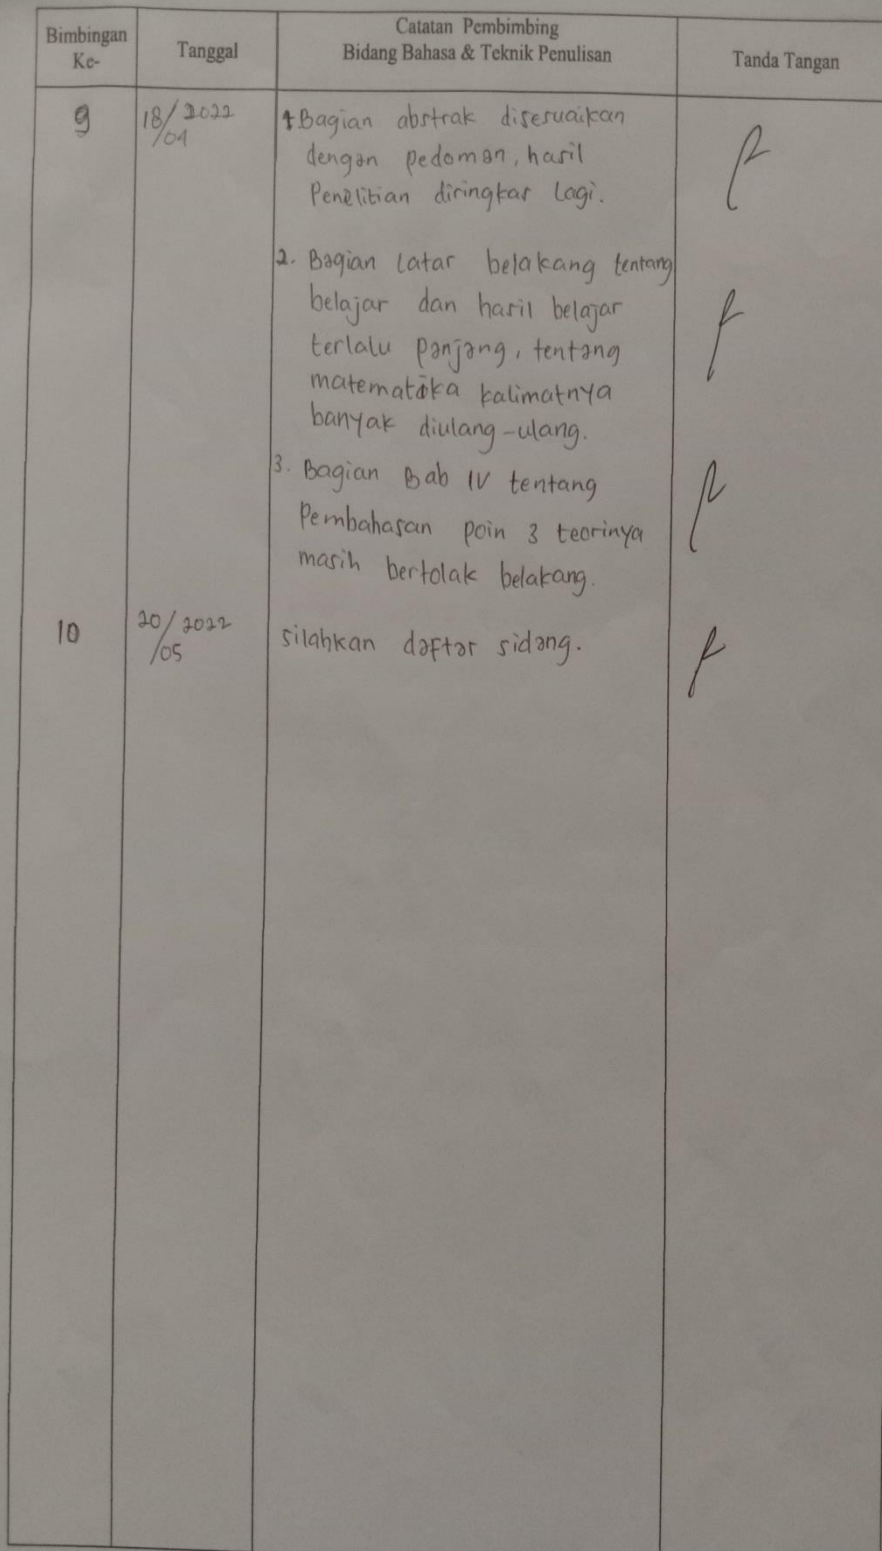 Bimbingan Ke-
Tanggal
Catatan Pembimbing
Bidang Bahasa & Teknik Penulisan
Tanda Tangan
9
18/2022
/01
1 Bagian abstrak disesuaikan
dengan pedoman, hasil
Penelitian diringkas lagi.
2. Bagian latar belakang tentang
belajar dan hasil belajar
terlalu panjang, tentang
matematika kalimatnya
banyak diulang-ulang.
3. Bagian Bab IV tentang
Pembahasan poin 3 teorinya
masih bertolak belakang.
10
20/2022
/05
silahkan daftar sidang.